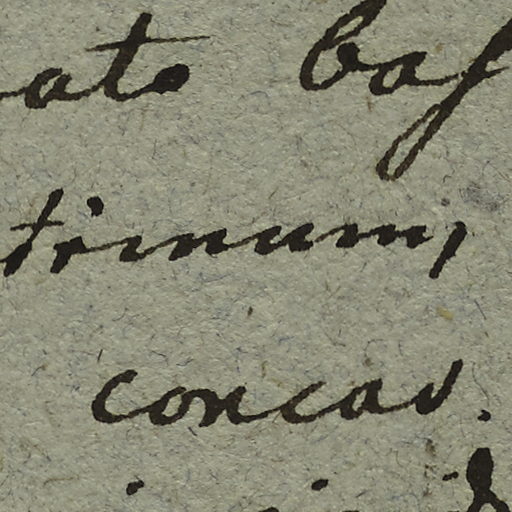 ato baſ
trinum,
concav.